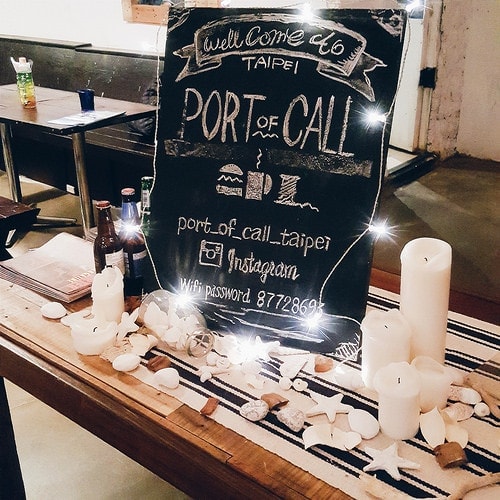 Wellcome to
TAIPEI
PORT OF CALL
port_of_call_taipei
Instagram
Wifi password 87728693